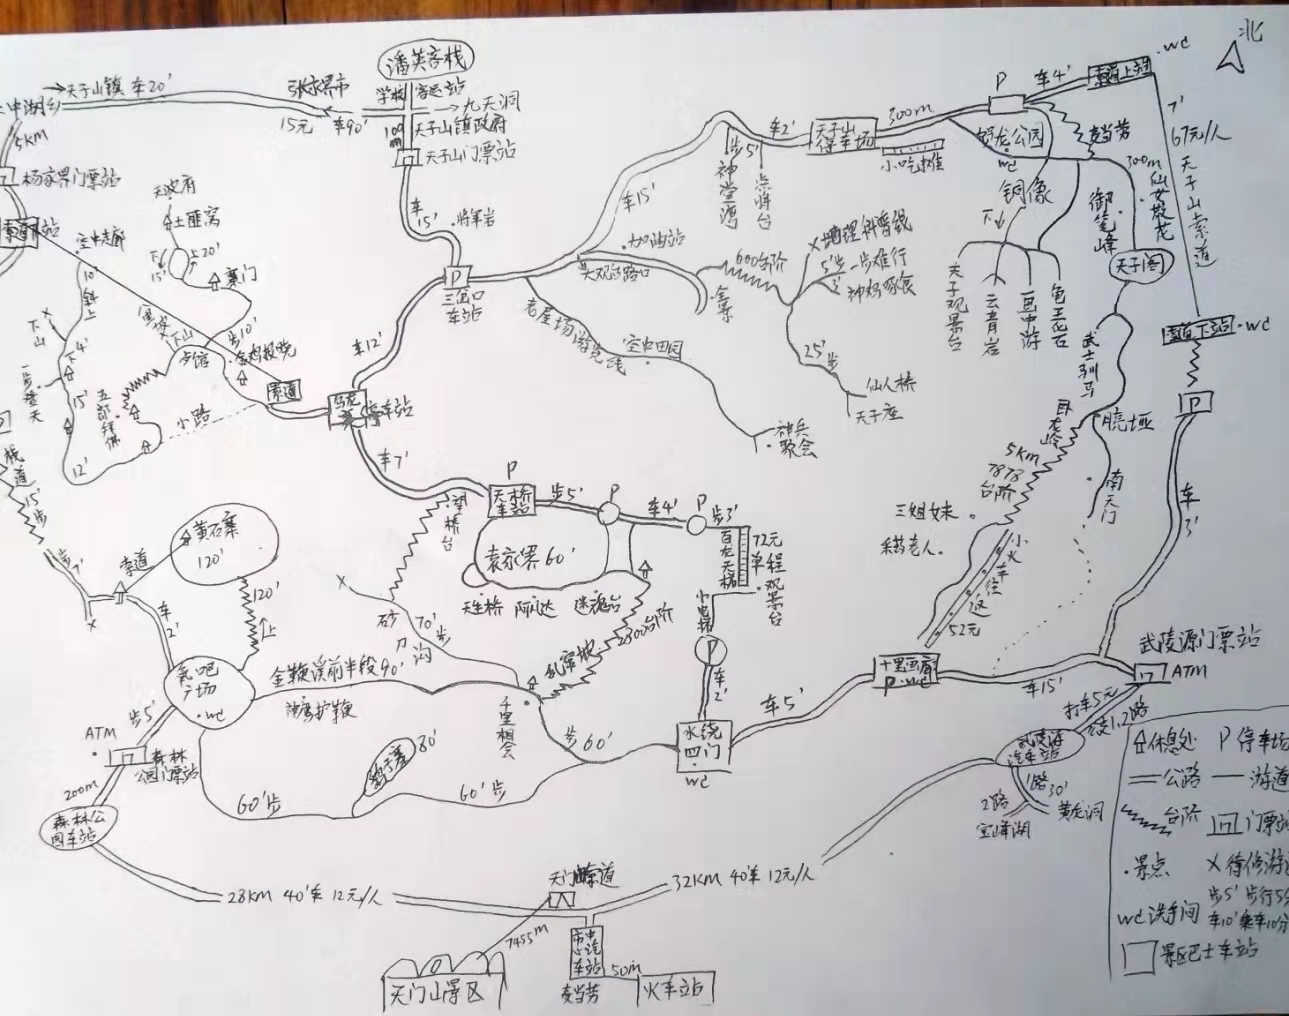 北
潘英客栈
学校
客运站
→天子山镇 车20'
中湖乡
张家界市
15元
车90'
→九天洞
100m
天子山镇政府
天子山门票站
5KM
杨家界门票站
车15'
·将军岩
P
三岔口
车站
天波府
土匪窝
下15'
上20'
寨门
空中走廊
10'
斜上
下山
下4'
15'
一步登天
五郎拜佛
12'
下山
步10'
金鸡报晓
小路
索道
车12'
停车站
车7'
车15'
步5'
神堂湾
点将台
车2'
天子山
停车场
300m
小吃摊
P
车4'
索道上站
·wc
7'
67元/人
天子山索道
贺龙公园
wc
麦当劳
300m
仙女散花
铜像
下
御笔峰
天子阁
天子观景台
云青岩
一画中游
龟王岩
·加油站
大观台路口
600台阶
X地理科普线
5'
一步难行
3'
神鸡啄食
25'步
仙人桥
天子座
老屋场游览线
空中田园
神兵
聚会
索道下站
·wc
P
车3'
武士驯马
卧龙岭
5KM
7878
台阶
南天门
三姐妹·
采药老人·
小火车往返
52元
望桥台
P
天桥
车站
步5'
P
车4'
P
步3'
百龙天梯
72元
单程
观景台
袁家界60'
天生桥
阿凡达
迷魂台
2300台阶
乱窜坡
小电梯
P
车2'
砂刀沟
70'步
栈道
15'步
步7'
X
索道
黄石寨
120'
120'
上
车2'
氧吧
广场
·wc
金鞭溪前半段90'
神鹰护鞭
千里相会
步60'
水绕
四门
wc
车5'
十里画廊
P·wc
车15'
武陵源门票站
ATM
打车5元
公交1,2路
武陵源
汽车站
1路
30'
黄龙洞
2路
宝峰湖
步5'
ATM
森林
公园门票站
200m
森林公
园车站
60'步
鹞子寨
80'
60'步
28KM 40'车 12元/人
天门山索道
32KM 40'车 12元/人
7455m
天门山景区
市中心汽车站
麦当劳
50m
火车站
休息处
P 停车场
公路
游道
台阶
门票站
·景点
X 待修游道
wc洗手间
步5' 步行5分
车10'乘车10分
景区巴士车站